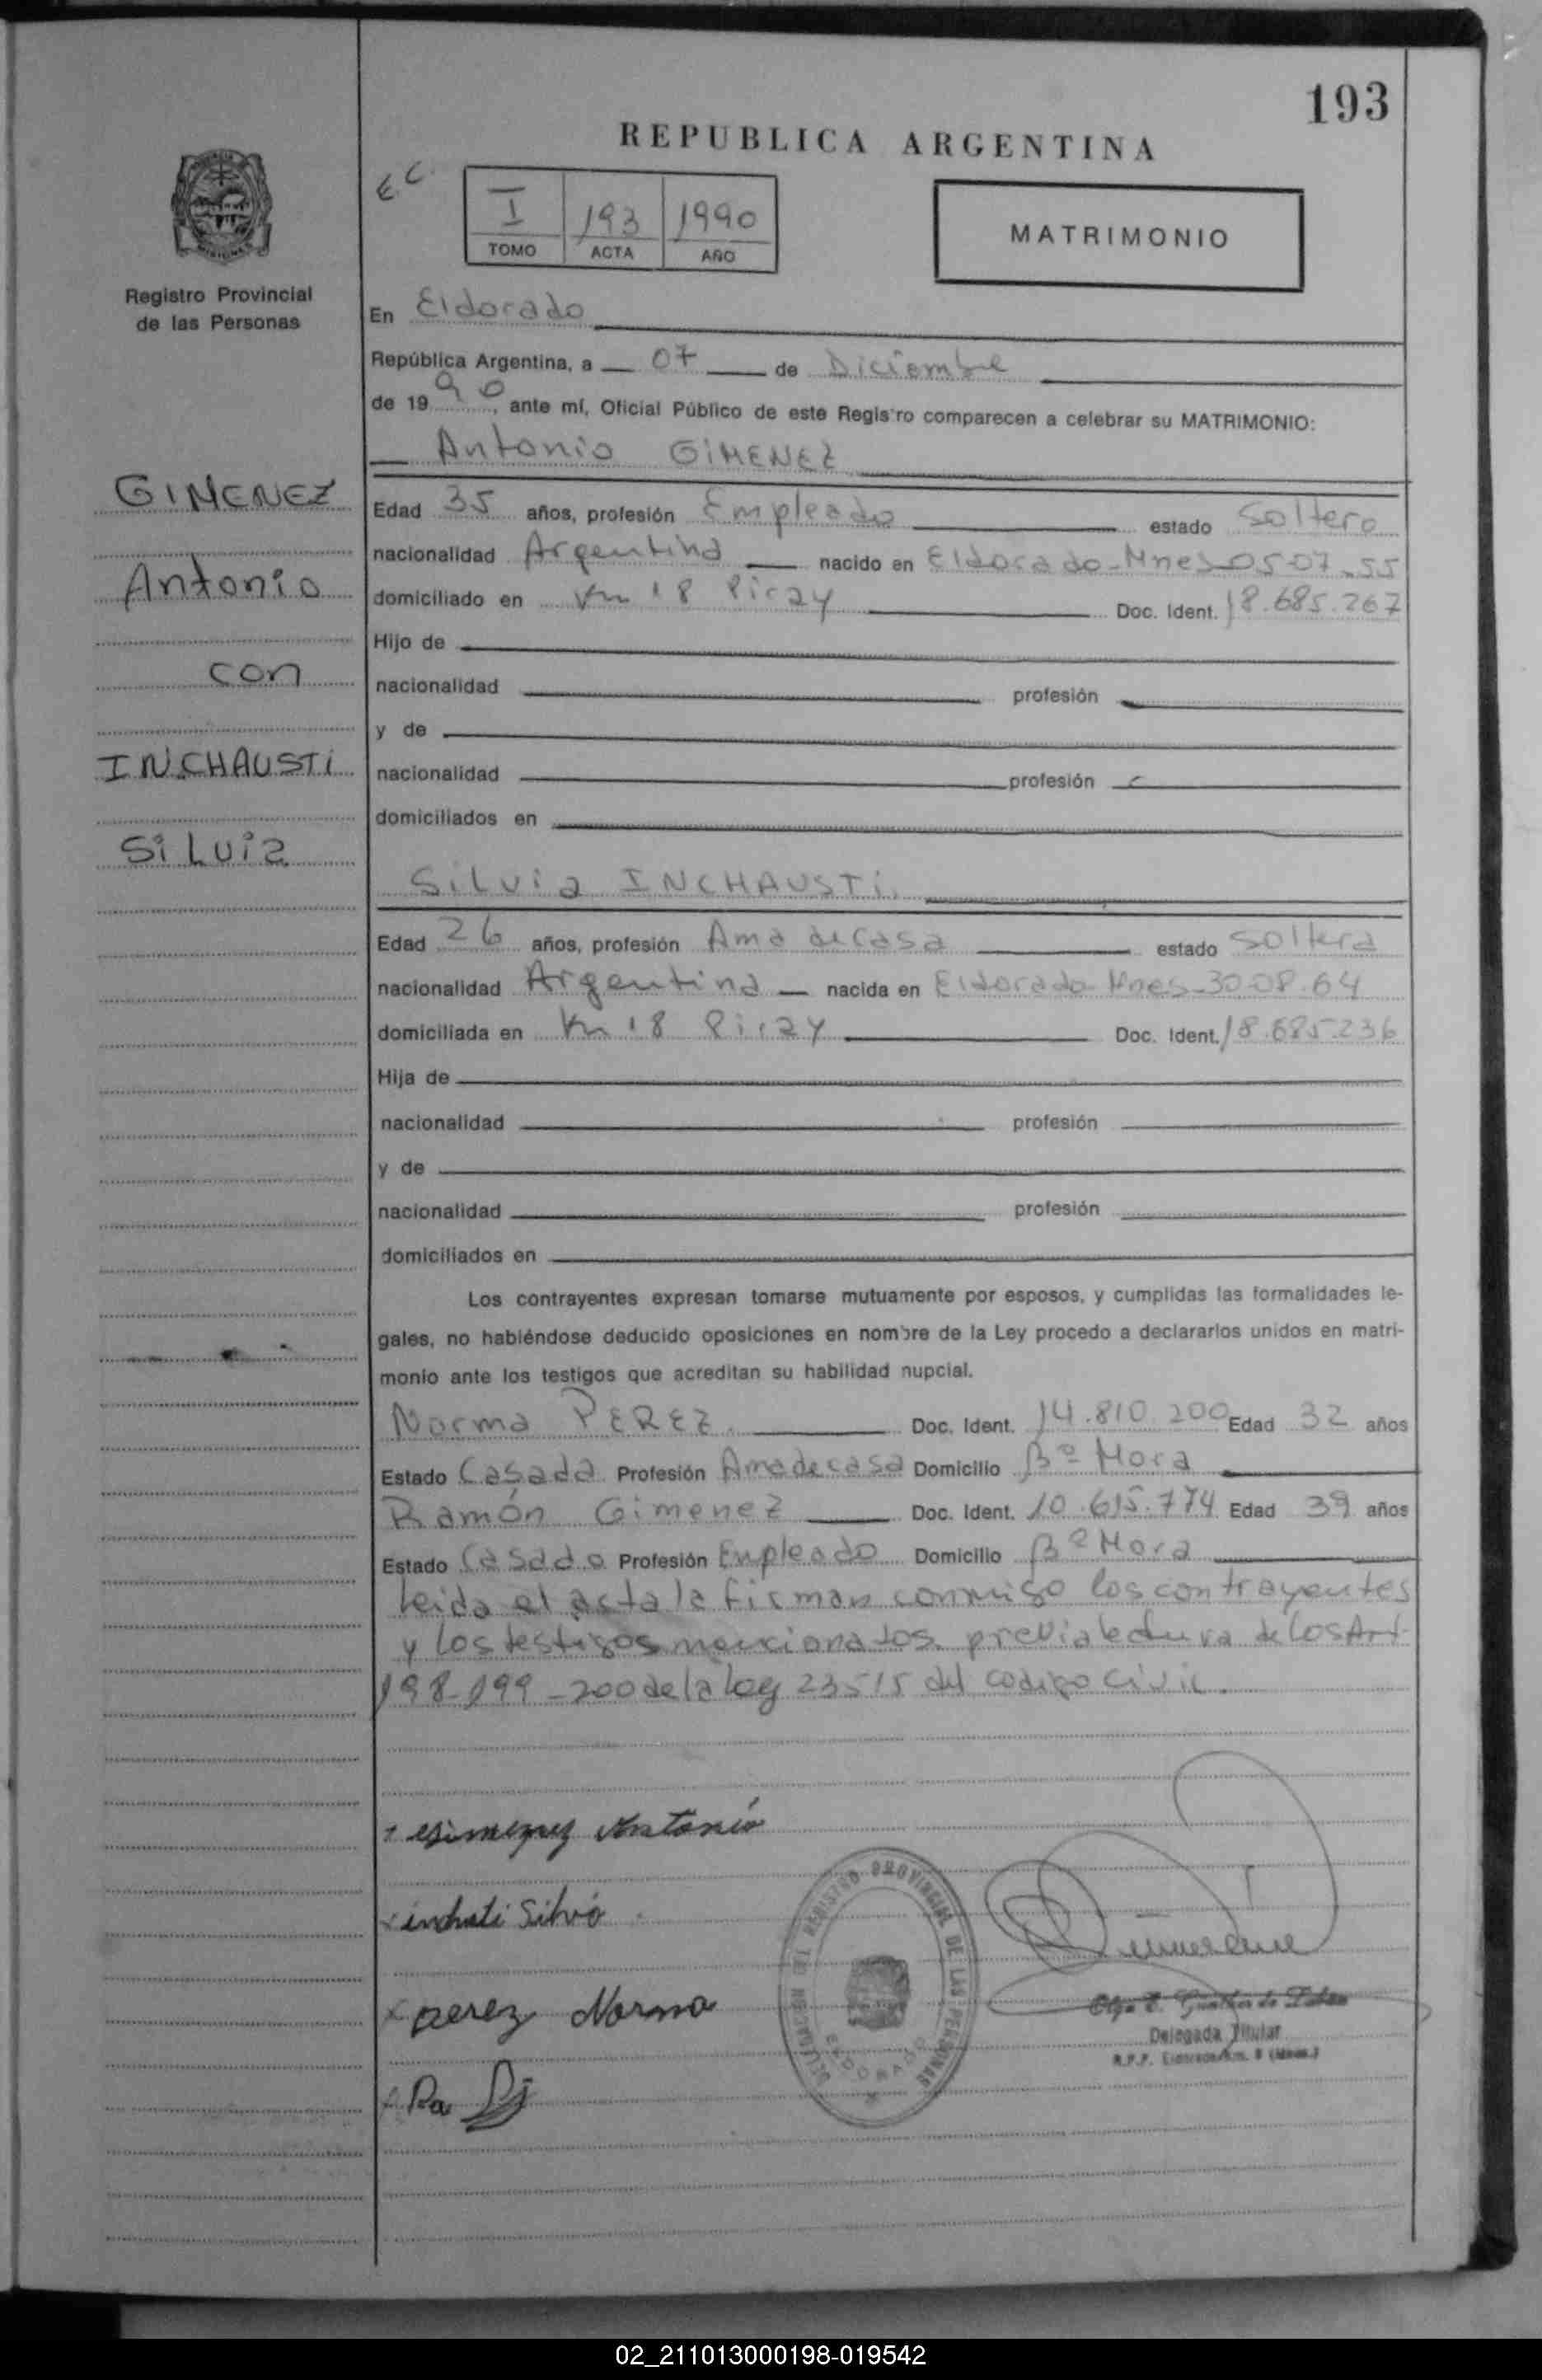 193
REPUBLICA ARGENTINA
E.C.
I 193 1990
TOMO ACTA AÑO
MATRIMONIO
Registro Provincial
de las Personas
En Eldorado
República Argentina, a 07 de Diciembre
de 1990, ante mí, Oficial Público de este Registro comparecen a celebrar su MATRIMONIO:
Antonio GIMENEZ
GIMENEZ
Antonio
con
INCHAUSTI
SiLvia
Edad 35 años, profesión Empleado estado Soltero
nacionalidad Argentina nacido en Eldorado-Mnes-05-07-55
domiciliado en Km 18 Piray Doc. Ident. 18.685.267
Hijo de
nacionalidad profesión
y de
nacionalidad profesión
domiciliados en
Silvia INCHAUSTi.
Edad 26 años, profesión Ama de casa estado Soltera
nacionalidad Argentina nacida en Eldorado-Mnes-30-08.64
domiciliada en Km 18 Piray Doc. Ident. 18.685.236
Hija de
nacionalidad profesión
y de
nacionalidad profesión
domiciliados en
Los contrayentes expresan tomarse mutuamente por esposos, y cumplidas las formalidades le-
gales, no habiéndose deducido oposiciones en nombre de la Ley procedo a declararlos unidos en matri-
monio ante los testigos que acreditan su habilidad nupcial.
Norma PEREZ. Doc. Ident. 14.810.200 Edad 32 años
Estado Casada Profesión Ama de casa Domicilio Bº Mora
Ramón Gimenez Doc. Ident. 10.615.774 Edad 39 años
Estado Casado Profesión Empleado Domicilio Bº Mora
Leida el acta la firman conmigo los contrayentes
y los testigos mencionados. previa lectura de los Art.
198-199-200 de la ley 23515 del codigo civil.
Gimenez Antonio
perez Norma
DELEGACION DEL REGISTRO PROVINCIAL DE LAS PERSONAS
ELDORADO
Delegada Titular
02_211013000198-019542